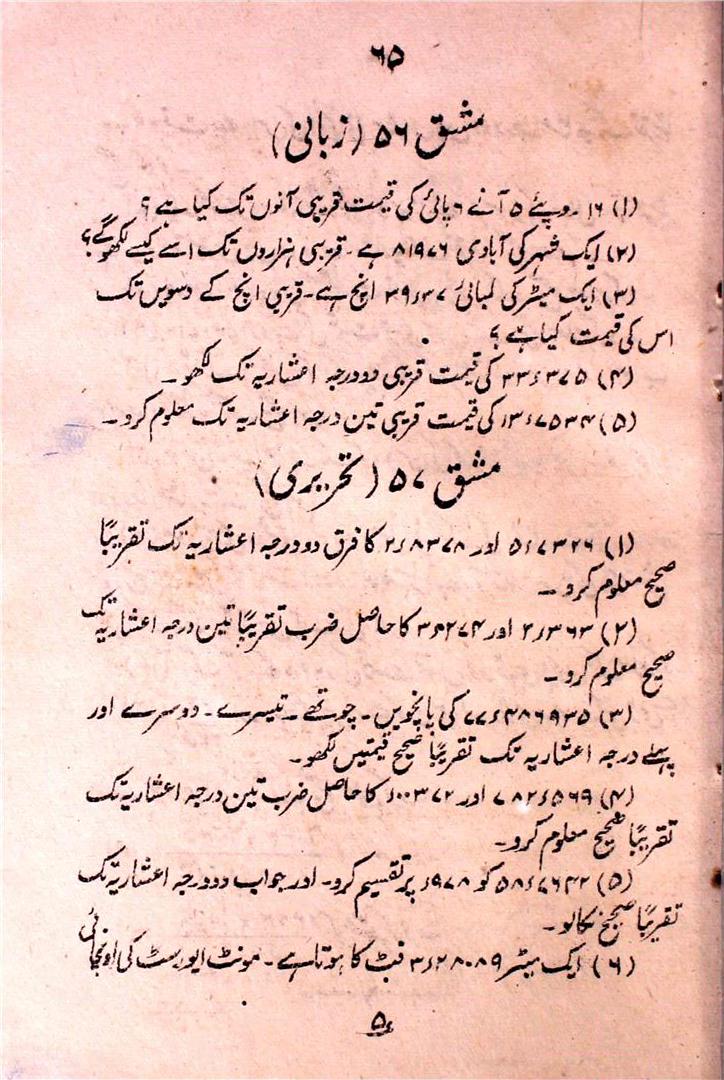 ۶۵
مشق ۵۶ (زبانی)
(۱) ۱۶ روپئے ۵ آنے ۶ پائی کی قیمت قریبی آنوں تک کیا ہے؟
(۲) ایک شہر کی آبادی ۸۱۹۷۶ ہے۔ قریبی ہزاروں تک اسے کیسے لکھو گے؟
(۳) ایک میٹر کی لمبائی ۳۹ء۳۷ انچ ہے۔ قریبی انچ کے دسویں تک
اس کی قیمت کیا ہے؟
(۴) ۳۳ء۳۷۵ کی قیمت قریبی دو درجہ اعشاریہ تک لکھو۔
(۵) ۱۳ء۷۵۳۴ کی قیمت قریبی تین درجہ اعشاریہ تک معلوم کرو۔
مشق ۵۷ (تحریری)
(۱) ۵ء۷۳۲۶ اور ۲ء۸۳۷۸ کا فرق دو درجہ اعشاریہ تک تقریباً
صحیح معلوم کرو۔
(۲) ۲ء۳۶۳ اور ۳ء۲۷۴ کا حاصل ضرب تقریباً تین درجہ اعشاریہ تک
صحیح معلوم کرو۔
(۳) ۷۷ء۴۸۶۹۳۵ کی پانچویں۔ چوتھے۔ تیسرے۔ دوسرے اور
پہلے درجہ اعشاریہ تک تقریباً صحیح قیمتیں لکھو۔
(۴) ۷۸۲ء۵۶۹ اور ء۰۰۳۷۲ کا حاصل ضرب تین درجہ اعشاریہ تک
تقریباً صحیح معلوم کرو۔
(۵) ۵۸ء۷۶۴۲ کو ء۹۷۸ پر تقسیم کرو۔ اور جواب دو درجہ اعشاریہ تک
تقریباً صحیح نکالو۔
(۶) ایک میٹر ۳ء۲۸۰۸۹ فٹ کا ہوتا ہے۔ مونٹ ایورسٹ کی اونچائی
۵ء